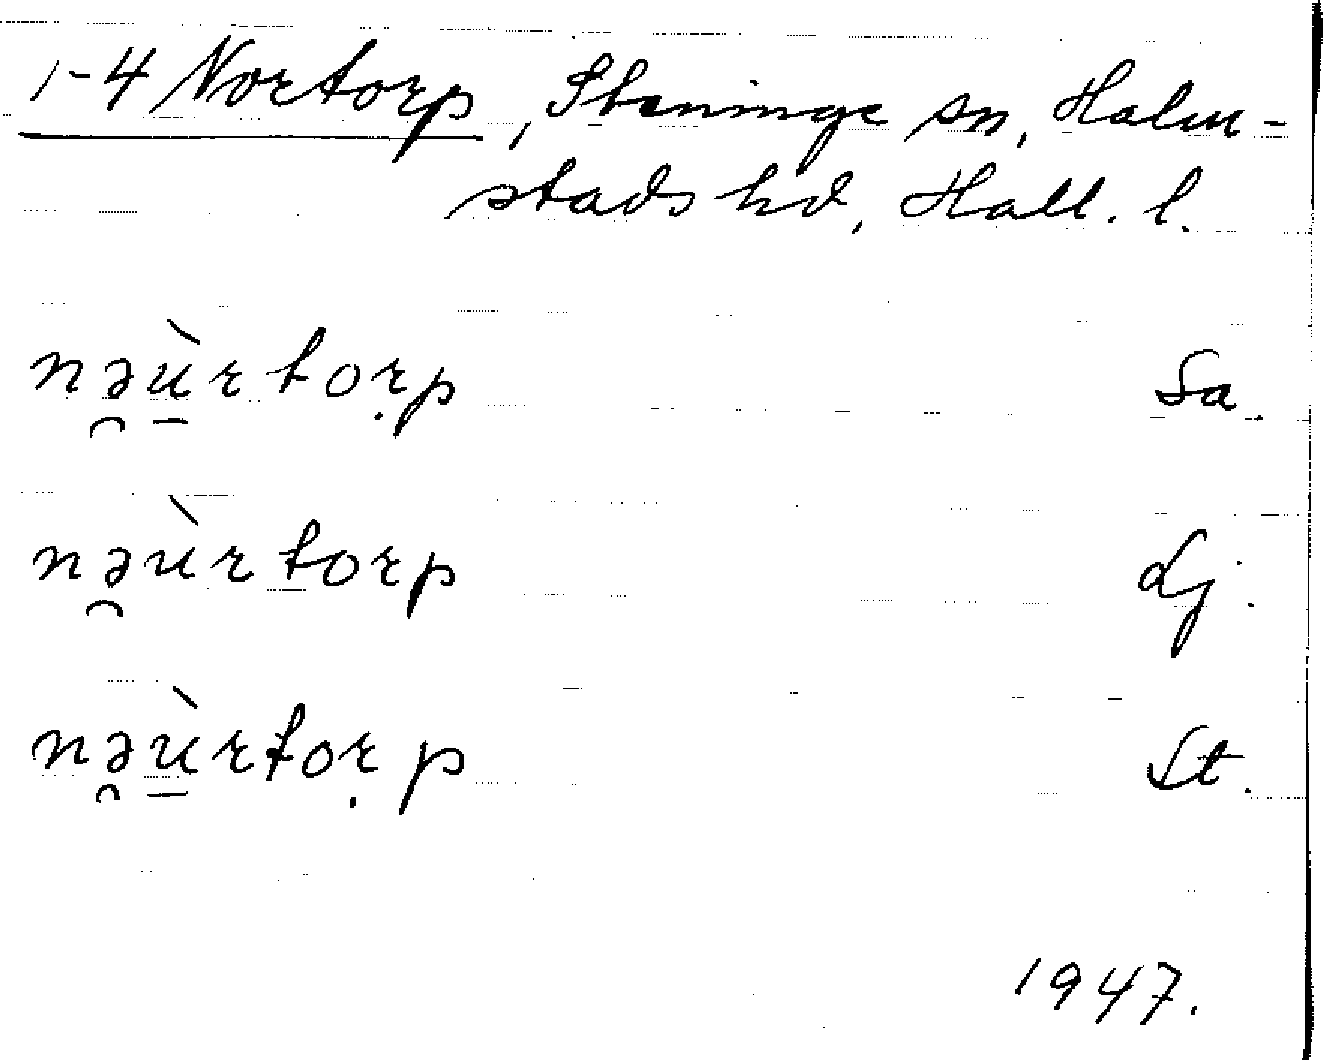 1-4 Nortorp, Steninge sn, Halm-
stads hd, Hall. l.
nə̯ù̱rtoṛp Sa.
nə̯ùrtorp Lj.
nə̯ù̱rtoṛp St.
1947.